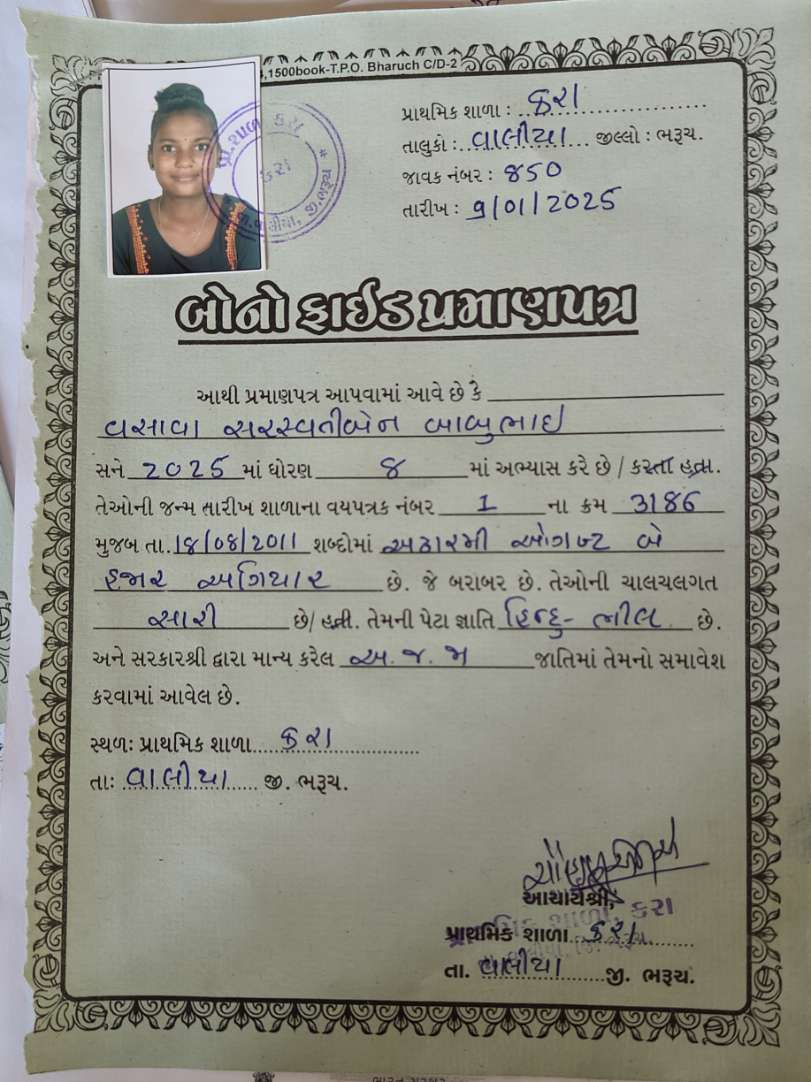 ,1500book-T.P.O. Bharuch C/D-2
પ્રાથમિક શાળા : કરા
તાલુકો : વાલીયા જીલ્લો : ભરૂચ.
જાવક નંબર : ૪૫૦
તારીખ : ૧/01/2025
પ્રા. શાળા કરા
કરા
જી. ભરૂચ *
બોનો ફાઈડ પ્રમાણપત્ર
આથી પ્રમાણપત્ર આપવામાં આવે છે કે
વસાવા સરસ્વતીબેન બાબુભાઇ
સને 2025 માં ધોરણ ૪ માં અભ્યાસ કરે છે / કરતા હતા.
તેઓની જન્મ તારીખ શાળાના વયપત્રક નંબર 1 ના ક્રમ 3186
મુજબ તા. 1૪/0૪/2011 શબ્દોમાં અઢારમી ઓગષ્ટ બે
હજાર અગિયાર છે. જે બરાબર છે. તેઓની ચાલચલગત
સારી છે/ હતી. તેમની પેટા જ્ઞાતિ હિન્દુ- ભીલ છે.
અને સરકારશ્રી દ્વારા માન્ય કરેલ અ. જ. જા જાતિમાં તેમનો સમાવેશ
કરવામાં આવેલ છે.
સ્થળ: પ્રાથમિક શાળા કરા
તા: વાલીયા જી. ભરૂચ.
આચાર્યશ્રી,
શાળા, કરા
પ્રાથમિક શાળા કરા
તા. વાલીયા જી. ભરૂચ.